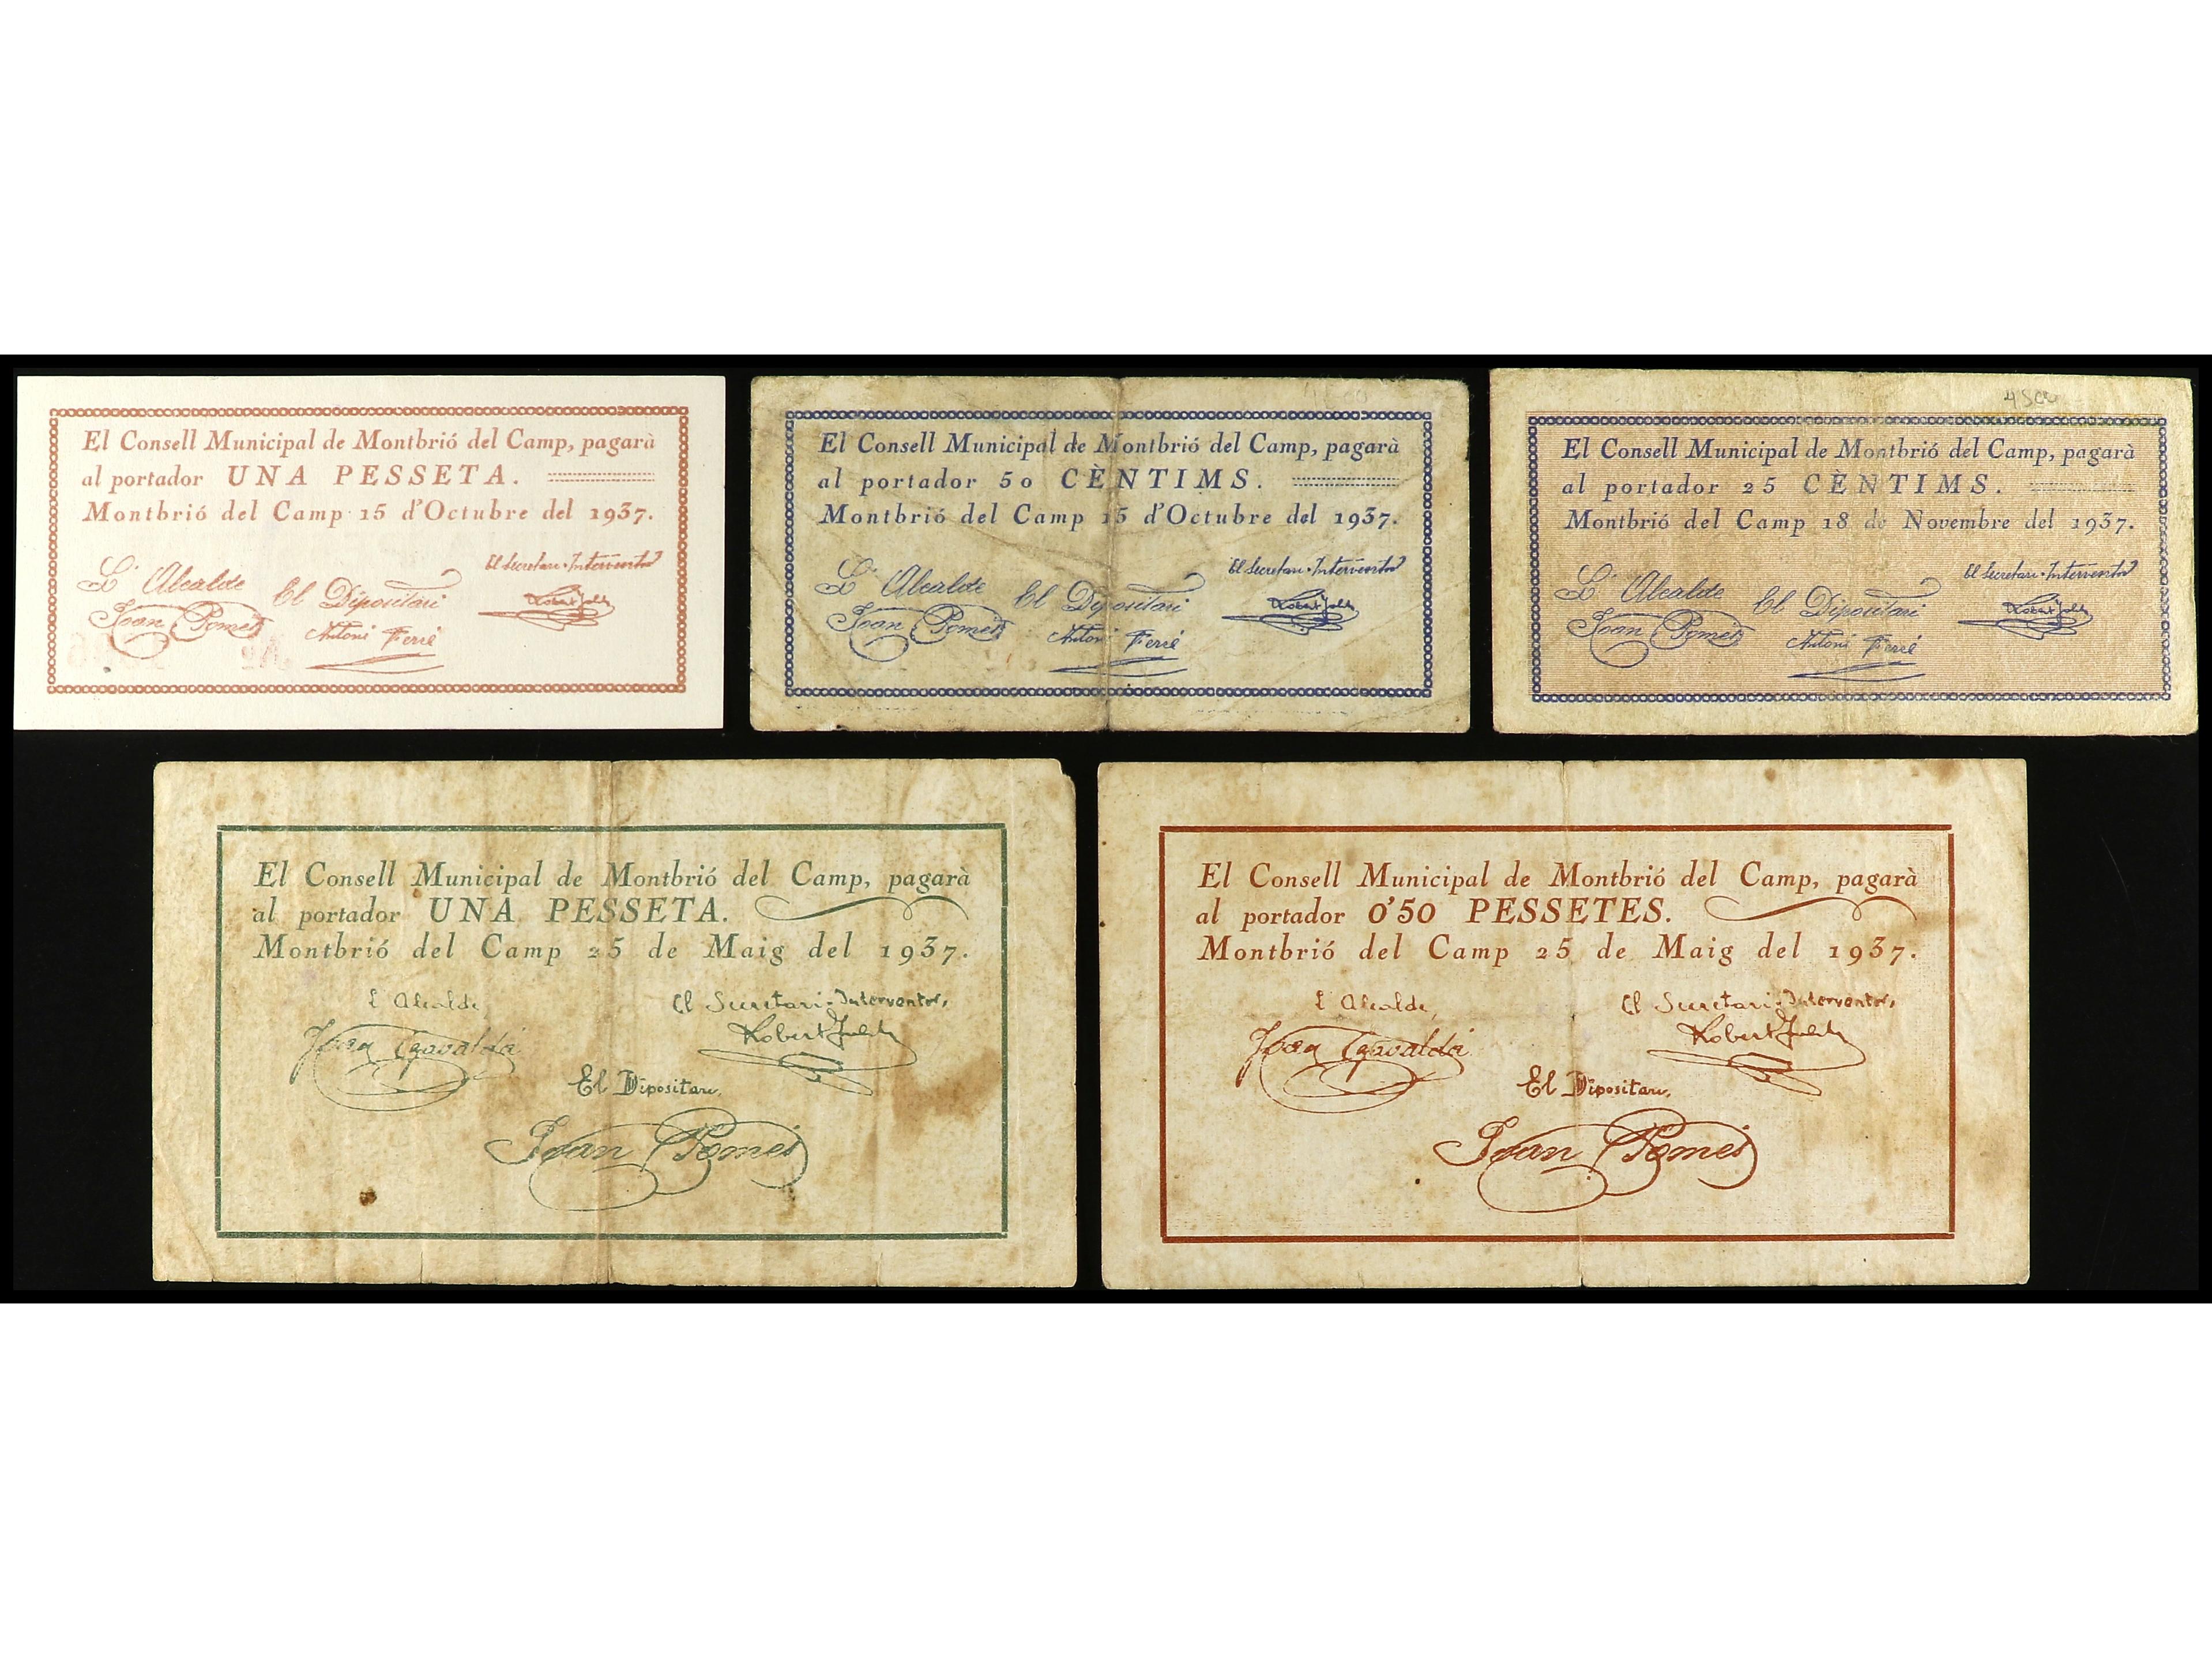 El Consell Municipal de Montbrió del Camp, pagarà
al portador UNA PESSETA.
Montbrió del Camp 15 d'Octubre del 1937.
L'Alcalde
El Dipositari
El Secretari-Interventor
Joan Pomés
Antoni Ferré
Robert
El Consell Municipal de Montbrió del Camp, pagarà
al portador 50 CÈNTIMS.
Montbrió del Camp 15 d'Octubre del 1937.
L'Alcalde
El Dipositari
El Secretari-Interventor
Joan Pomés
Antoni Ferré
Robert
El Consell Municipal de Montbrió del Camp, pagarà
al portador 25 CÈNTIMS.
Montbrió del Camp 18 de Novembre del 1937.
L'Alcalde
El Dipositari
El Secretari-Interventor
Joan Pomés
Antoni Ferré
Robert
El Consell Municipal de Montbrió del Camp, pagarà
al portador UNA PESSETA.
Montbrió del Camp 25 de Maig del 1937.
L'Alcalde
El Secretari-Interventor,
Joan Savaldá
Robert
El Dipositari,
Joan Pomés
El Consell Municipal de Montbrió del Camp, pagarà
al portador 0'50 PESSETES.
Montbrió del Camp 25 de Maig del 1937.
L'Alcalde,
El Secretari-Interventor,
Joan Savaldá
Robert
El Dipositari,
Joan Pomés